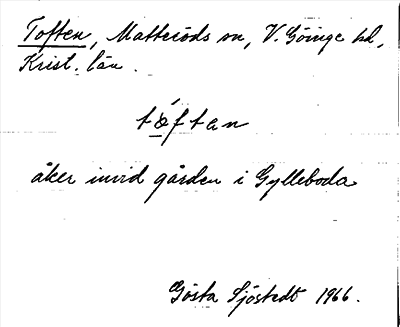 Toften, Matteröds sn, V. Göinge hd,
Krist. län.
tǿftan
åker invid gården i Gylleboda
Gösta Sjöstedt 1966.